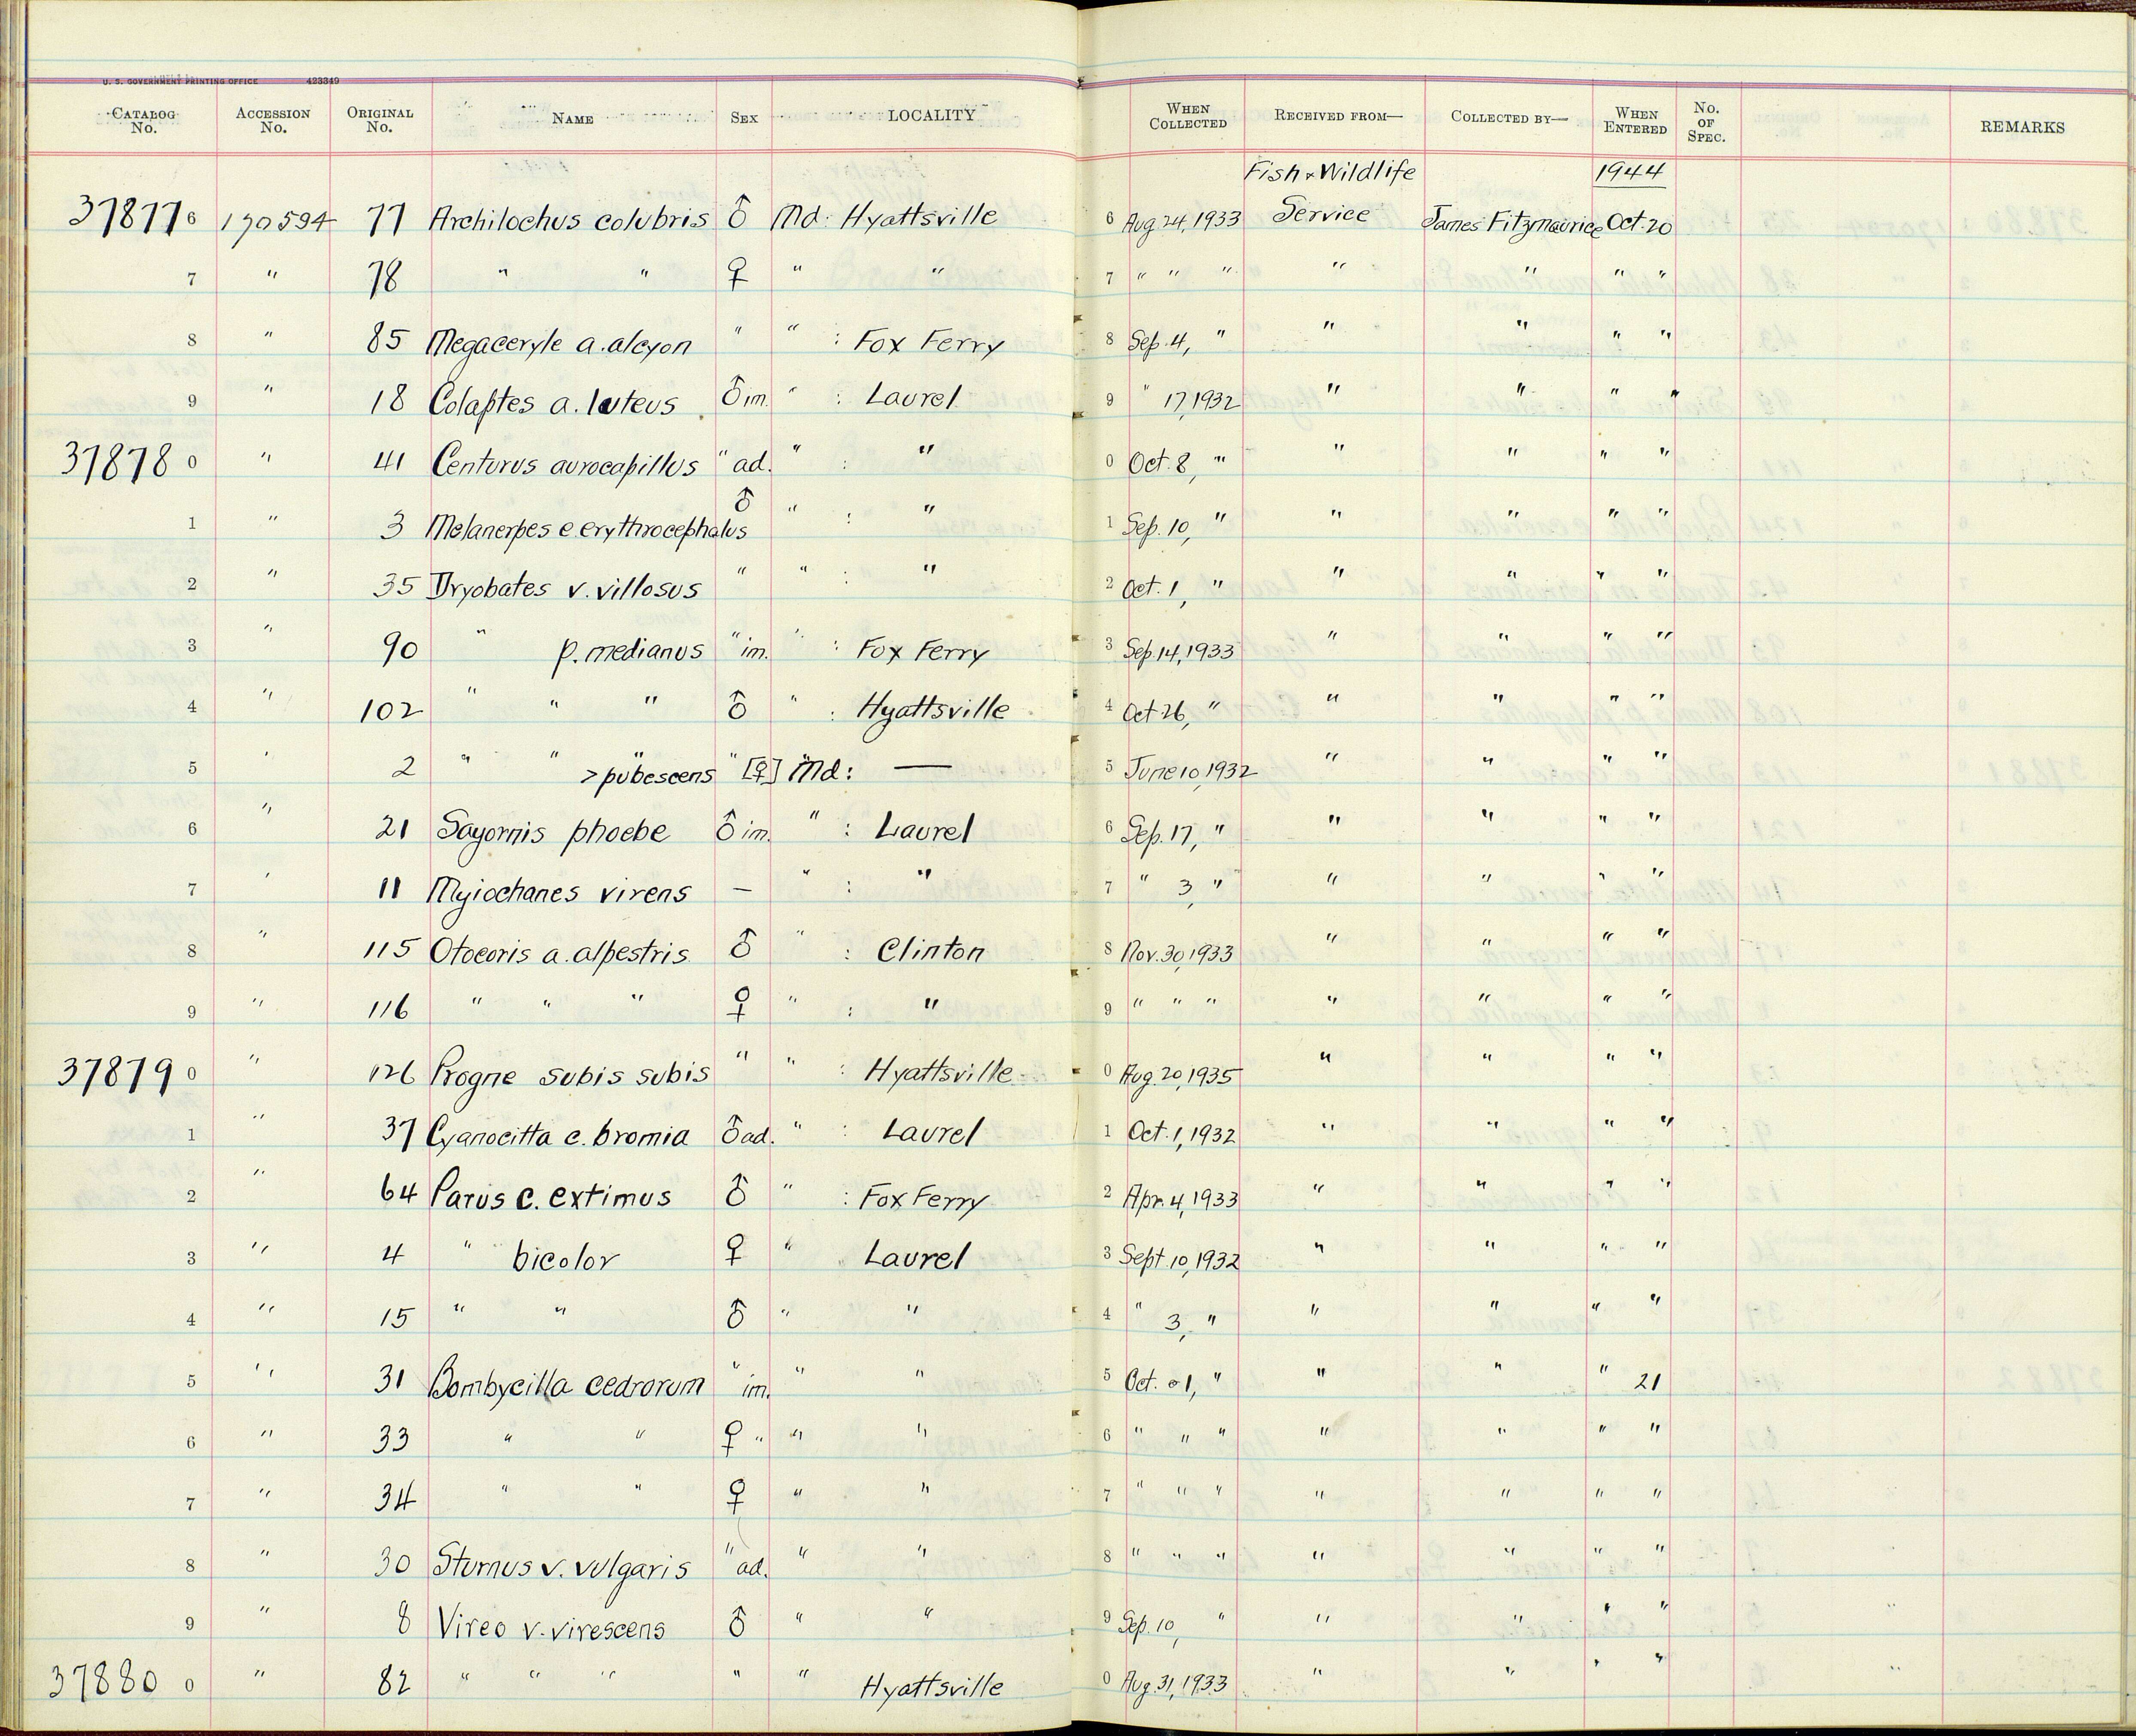 U. S. GOVERNMENT PRINTING OFFICE 423349
CATALOG No. ACCESSION No. ORIGINAL No. NAME SEX LOCALITY WHEN COLLECTED RECEIVED FROM— COLLECTED BY— WHEN ENTERED No. OF SPEC. REMARKS
Fish & Wildlife 1944
37877 6 170594 77 Archilochus colubris ♂ Md: Hyattsville 6 Aug 24, 1933 Service James Fitzmaurice Oct. 20
7 " 78 " " ♀ " " 7 " " " " " " "
8 " 85 Megaceryle a. alcyon " " : Fox Ferry 8 Sep. 4, " " " " "
9 " 18 Colaptes a. luteus ♂ im. " : Laurel 9 " 17, 1932 " " " "
37878 0 " 41 Centurus aurocapillus " ad. " : " 0 Oct. 8, " " " " "
1 " 3 Melanerpes e. erythrocephalus ♂ " : " 1 Sep. 10, " " " " "
2 " 35 Dryobates v. villosus " " : " 2 Oct. 1, " " " " "
3 " 90 " p. medianus " im. " : Fox Ferry 3 Sep. 14, 1933 " " " "
4 " 102 " " " ♂ " : Hyattsville 4 Oct 26, " " " " "
5 " 2 " " " >pubescens " [♀] Md: — 5 June 10, 1932 " " " "
6 " 21 Sayornis phoebe ♂ im. " : Laurel 6 Sep. 17, " " " " "
7 " 11 Myiochanes virens — " : " 7 " 3, " " " " "
8 " 115 Otocoris a. alpestris ♂ " : Clinton 8 Nov. 30, 1933 " " " "
9 " 116 " " " ♀ " : " 9 " " " " " " "
37879 0 " 126 Progne subis subis " " : Hyattsville 0 Aug. 20, 1935 " " " "
1 " 37 Cyanocitta c. bromia ♂ ad. " : Laurel 1 Oct. 1, 1932 " " " "
2 " 64 Parus c. extimus ♂ " : Fox Ferry 2 Apr. 4, 1933 " " " "
3 " 4 " bicolor ♀ " Laurel 3 Sept. 10, 1932 " " " "
4 " 15 " " ♂ " " 4 " 3, " " " " "
5 " 31 Bombycilla cedrorum " im. " " 5 Oct. 1, " " " " 21
6 " 33 " " ♀ " " " 6 " " " " " " "
7 " 34 " " ♀ " " 7 " " " " " " "
8 " 30 Sturnus v. vulgaris " ad. " " 8 " " " " " " "
9 " 8 Vireo v. virescens ♂ " " 9 Sep. 10, " " " " "
37880 0 " 82 " " " " " Hyattsville 0 Aug. 31, 1933 " " " "